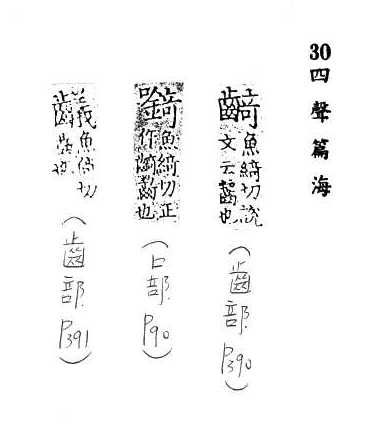 30四聲篇海
齮
魚綺切說
文云齧也
(齒部P390)
魚綺切正
作齮齧也
(口部P90)
魚倚切
齧也
(齒部P391)